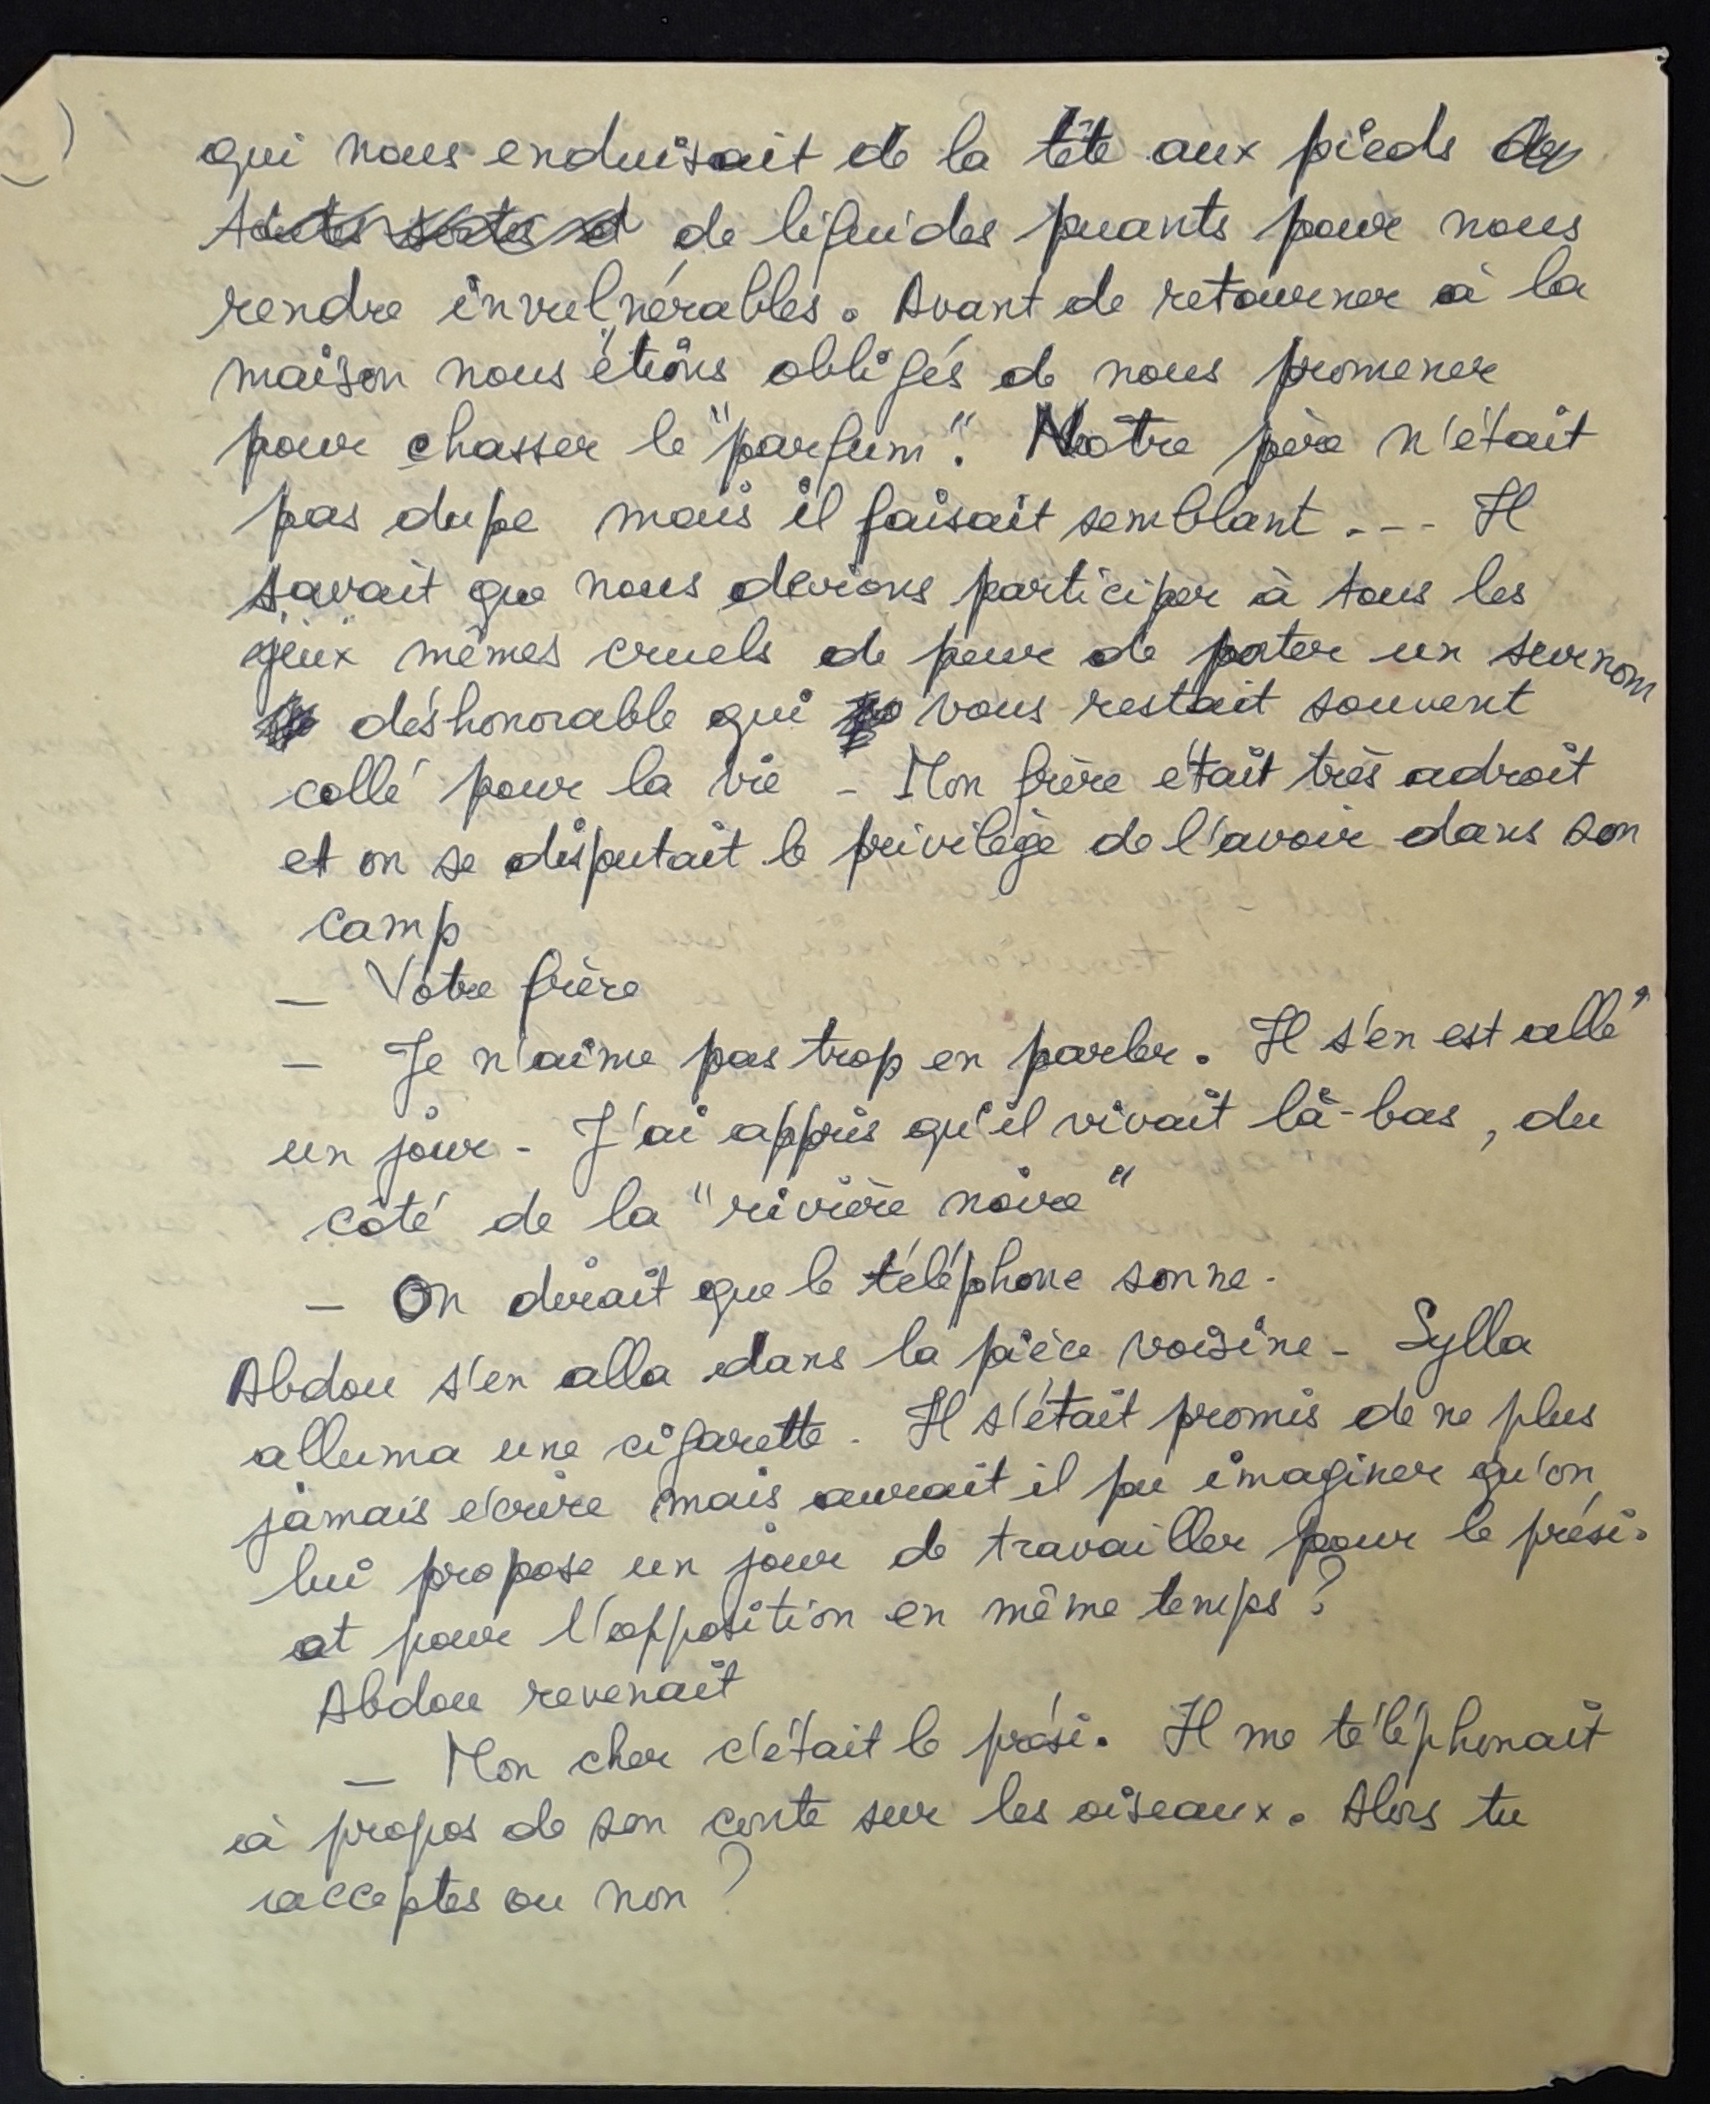 qui nous enduisait de la tête aux pieds de
toutes sortes d de liquides puants pour nous
rendre invulnérables. Avant de retourner à la
maison nous étions obligés de nous promener
pour chasser le "parfum". Notre père n'était
pas dupe mais il faisait semblant --- Il
savait que nous devions participer à tous les
jeux mêmes cruels de peur de porter un surnom
déshonorable qui vous restait souvent
collé pour la vie - Mon frère était très adroit
et on se disputait le privilège de l'avoir dans son
camp
— Votre frère
— Je n'aime pas trop en parler. Il s'en est allé
un jour - J'ai appris qu'il vivait là-bas, du
côté de la "rivière noire"
— On dirait que le téléphone sonne.
Abdou s'en alla dans la pièce voisine - Sylla
alluma une cigarette. Il s'était promis de ne plus
jamais écrire mais aurait il pu imaginer qu'on
lui propose un jour de travailler pour le prési.
et pour l'opposition en même temps ?
Abdou revenait
— Mon cher c'était le prési. Il me téléphonait
à propos de son conte sur les oiseaux. Alors tu
acceptes ou non ?